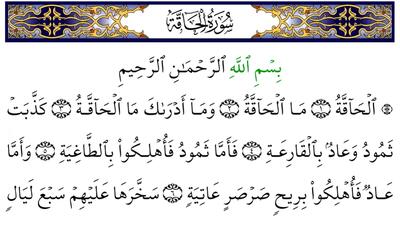 سُورَةُ الْحَاقَّةِ
بِسْمِ اللَّهِ الرَّحْمَٰنِ الرَّحِيمِ
۞ ٱلْحَآقَّةُ ١ مَا ٱلْحَآقَّةُ ٢ وَمَآ أَدْرَىٰكَ مَا ٱلْحَآقَّةُ ٣ كَذَّبَتْ
ثَمُودُ وَعَادٌۢ بِٱلْقَارِعَةِ ٤ فَأَمَّا ثَمُودُ فَأُهْلِكُوا۟ بِٱلطَّاغِيَةِ ٥ وَأَمَّا
عَادٌ فَأُهْلِكُوا۟ بِرِيحٍ صَرْصَرٍ عَاتِيَةٍ ٦ سَخَّرَهَا عَلَيْهِمْ سَبْعَ لَيَالٍ